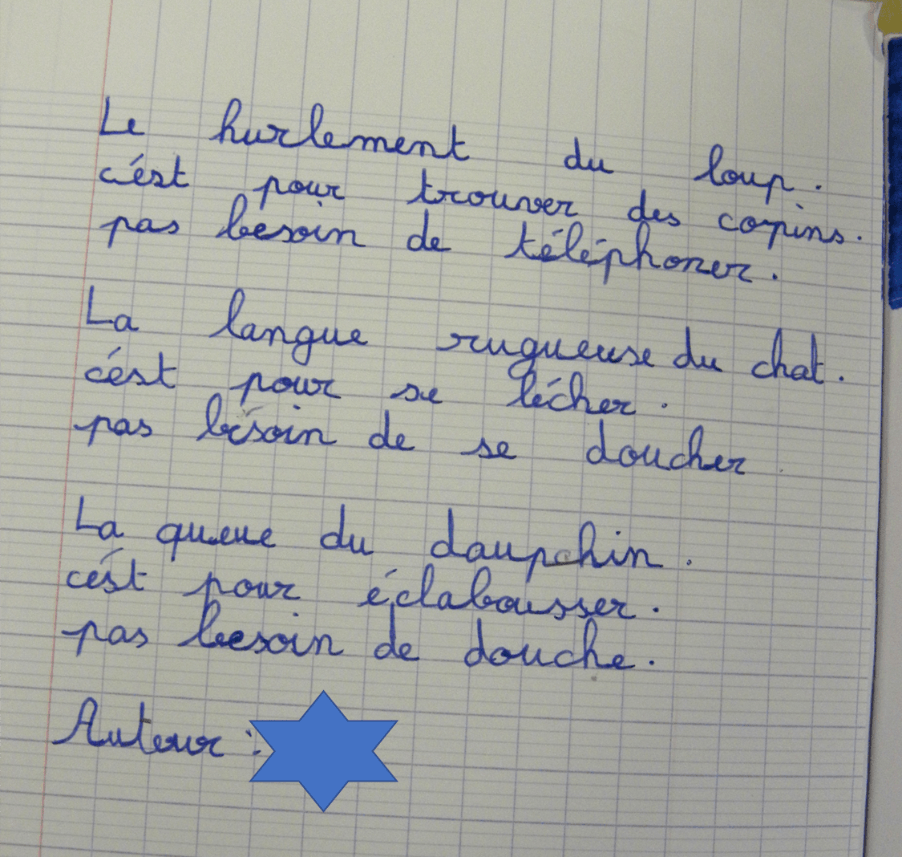 Le hurlement du loup.
c'ést pour trouver des copins.
pas besoin de téléphoner.
La langue rugueuse du chat.
c'ést pour se lécher.
pas bésoin de se doucher
La queue du daupchin.
c'ést pour éclabousser.
pas besoin de douche.
Auteur :